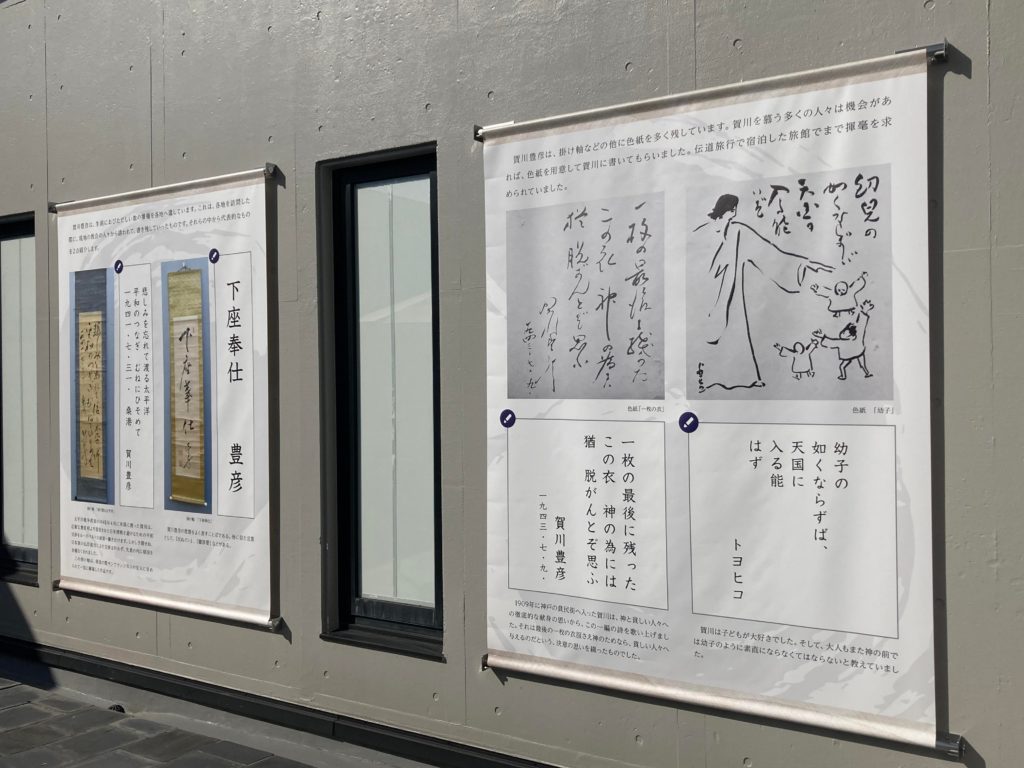 賀川豊彦は、生前におびただしい数の書幅を各地へ遺しています。これは、各地を訪問した
下座奉仕　豊彦
悲しみを忘れて渡る太平洋
平和のつなぎ　むねにひそめて
一九四一・七・三一・桑港　賀川豊彦
賀川豊彦は、掛け軸などの他に色紙を多く残しています。賀川を慕う多くの人々は機会があ
れば、色紙を用意して賀川に書いてもらいました。伝道旅行で宿泊した旅館でまで揮毫を求
められていました。
幼児の
如くならずば
天国に
入る能
はず
一枚の最后に残った
この衣　神の為には
猶　脱がんとぞ思ふ
色紙「一枚の衣」
色紙　「幼子」
一枚の最後に残った
この衣　神の為には
猶　脱がんとぞ思ふ
賀川豊彦
一九四三・七・九・
幼子の
如くならずば、
天国に
入る能
はず
トヨヒコ
1909年に神戸の貧民街へ入った賀川は、神と貧しい人々へ
の徹底的な献身の思いから、この一編の詩を歌い上げまし
た。それは最後の一枚の衣服さえ神のためなら、貧しい人々へ
与えるのだという、決意の思いを綴ったものでした。
賀川は子どもが大好きでした。そして、大人もまた神の前で
は幼子のように素直にならなくてはならないと教えていまし
た。